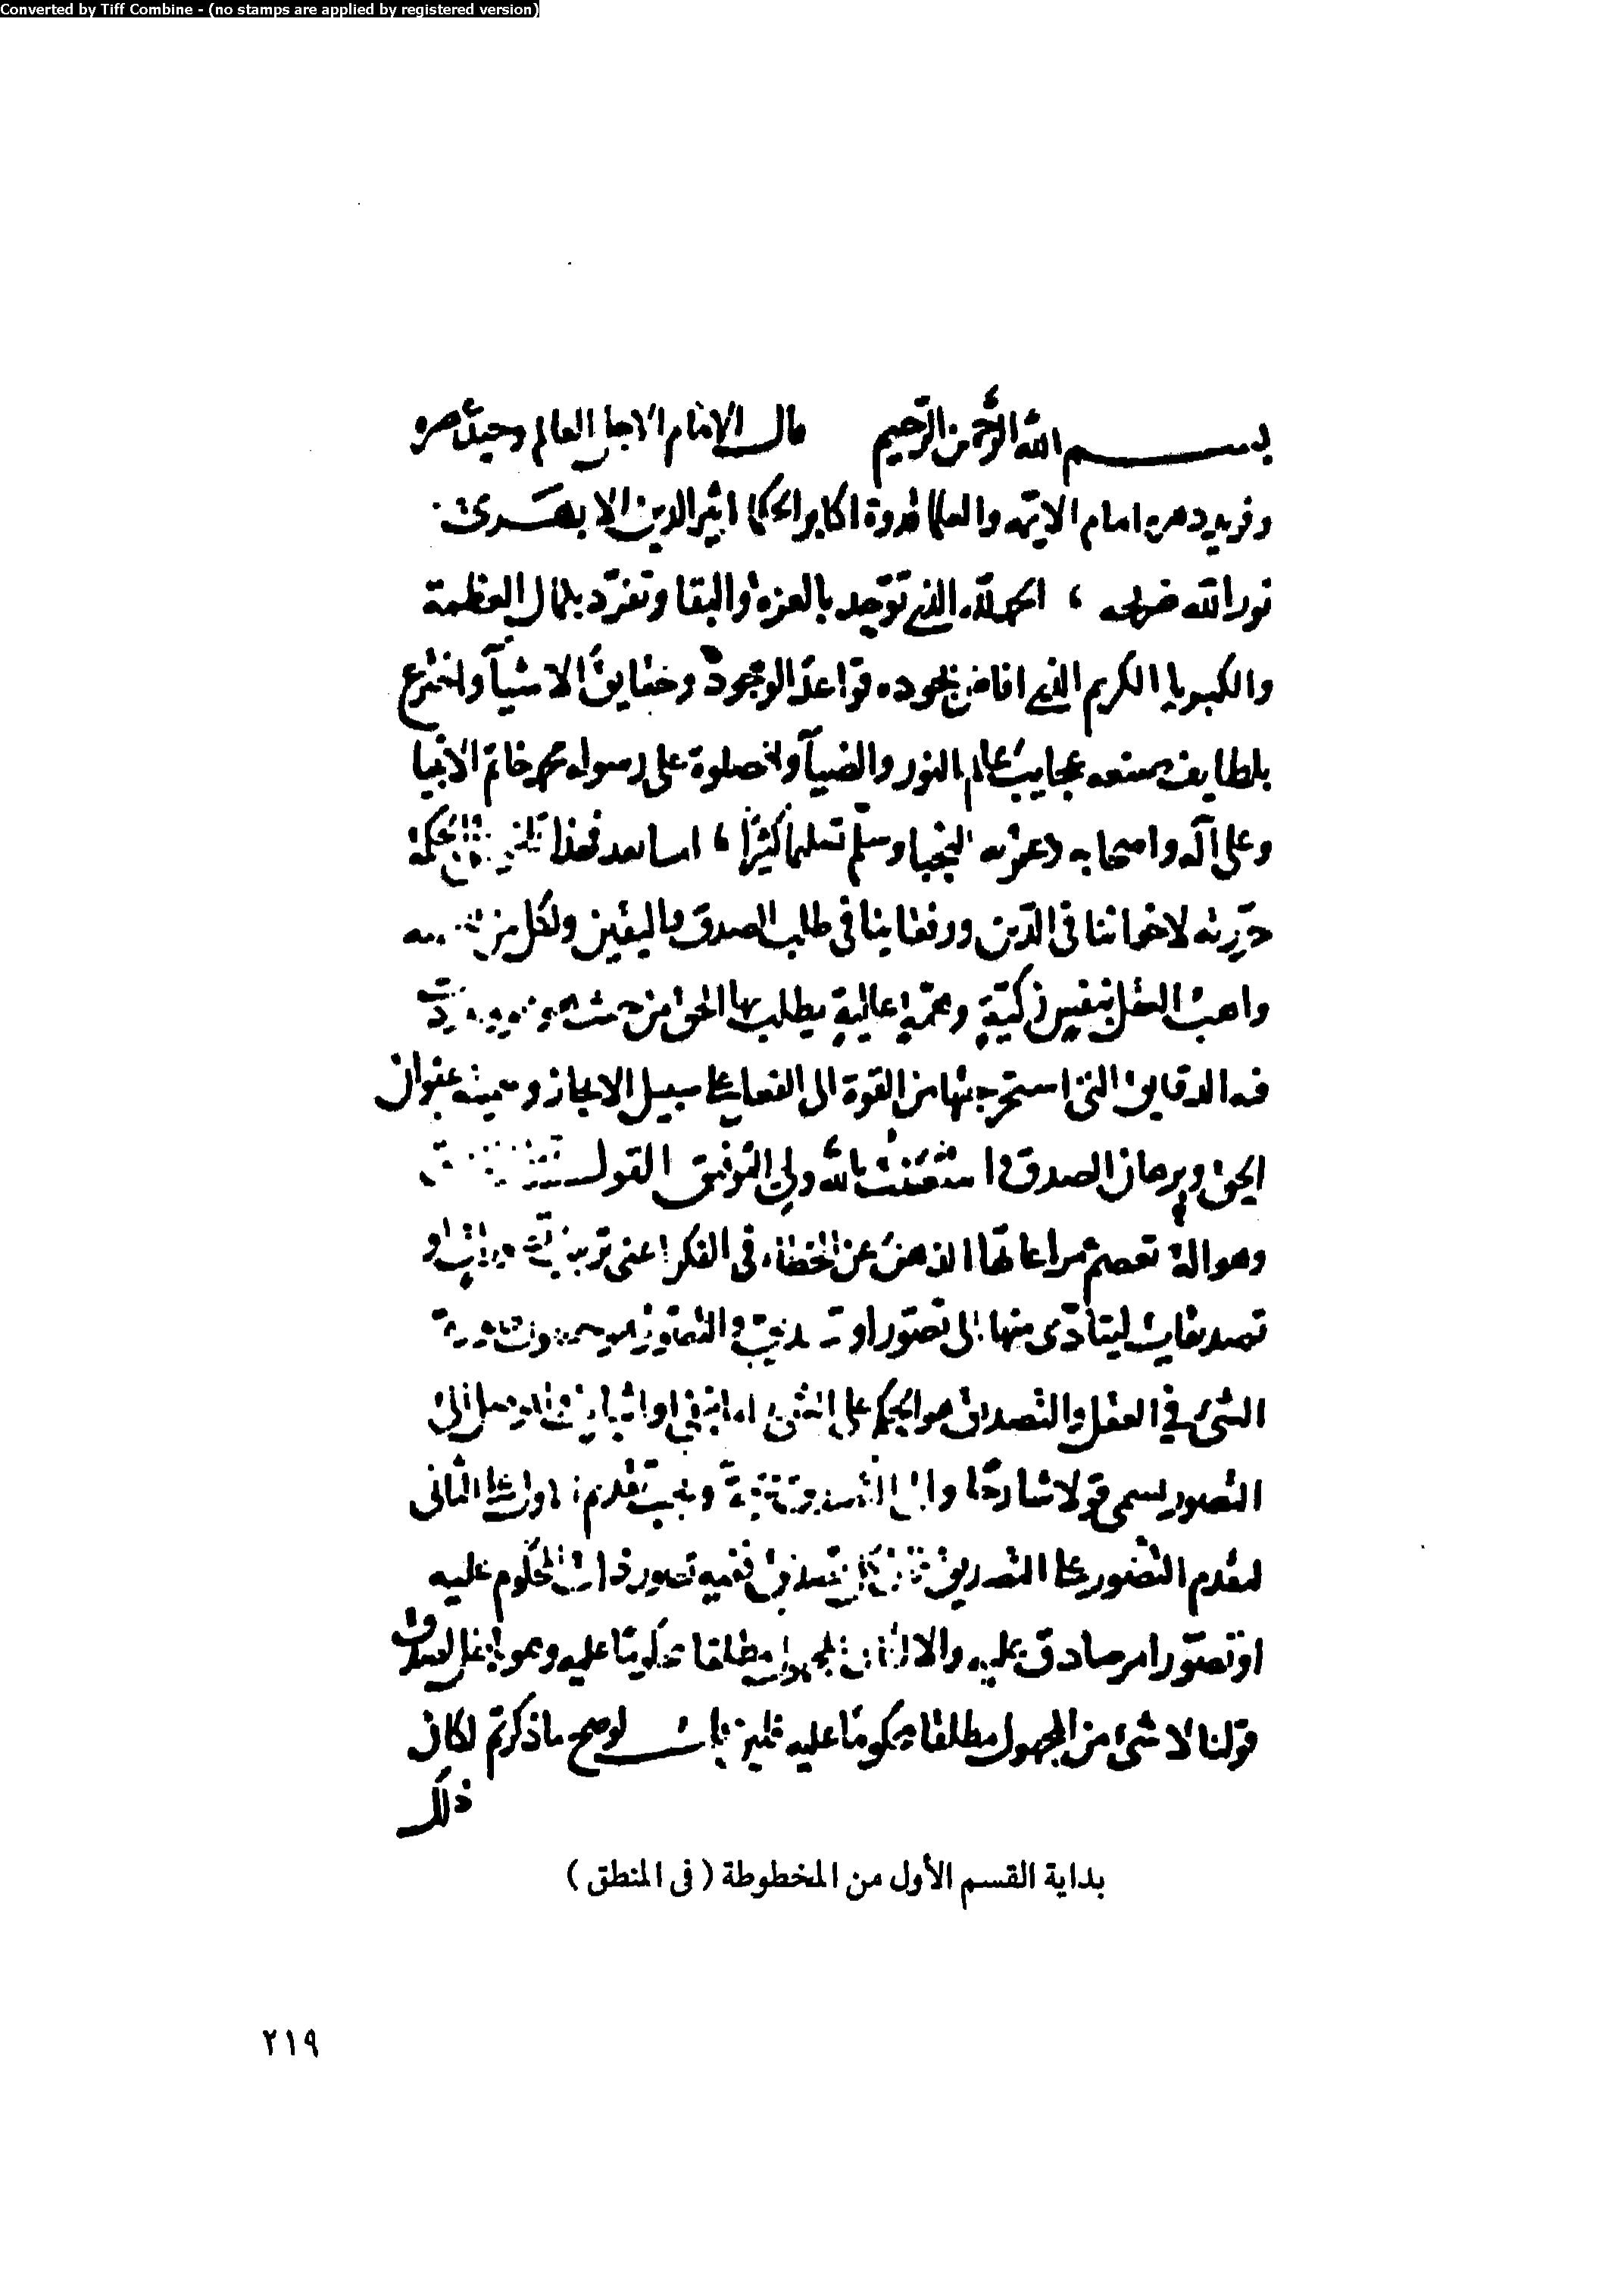 Converted by Tiff Combine - (no stamps are applied by registered version)
بسم الله الرحمن الرحيم قال الامام الاجل العالم وحيد عصره
وفريد دهره امام الايمه والعلما قدوة اكابر الحكما اثير الدين الابهرى
نور الله ضريحه ، الحمد لله الذى توحد بالعزة والبقا وتفرد بكمال العظمة
والكبريا الكريم الذى افاض بجوده قواعد الوجود وحقايق الاشيآ واخترع
بلطايف صنعه عجايب عالم النور والضيآ والصلوة على رسوله محمد خاتم الانبيا
وعلى آله واصحابه وعترته النجبا وسلم تسليما كثيرا ، اما بعد فهذا الحكمة
حررته لاخواننا فى الدين ورفقاينا فى طلب الصدق واليقين ولكل من
واهب العقل بنفس زكية وهمة عالية يطلب بها الحق من
فيه الدقايق التى استخرجتها من القوة الى الفعل على سبيل الايجاز وسميته عنوان
الحق وبرهان الصدق واستعنت بالله ولى التوفيق القول
وهو الة تعصم مراعاتها الذهن عن الخطاء فى الفكر اعنى ترتيب او
تصديقات ليتادى منها الى تصور او والتصور هو
الشئ فى العقل والتصديق هو الحكم على الشئ اما بنفى او اثبات الى
التصور يسمى قولا شارحا والى التصديق ويجب تقديم الاول على الثانى
لتقدم التصور على التصديق تصديق ففيه تصور ذات المحكوم عليه
او تصور امر صادق عليه والا لكان المجهول مطلقا محكوما عليه وهو
قولنا لا شئ من المجهول مطلقا محكوما عليه لو صح ما ذكرتم لكان
ذلك
بداية القسم الأول من المخطوطة ( فى المنطق )
٢١٩